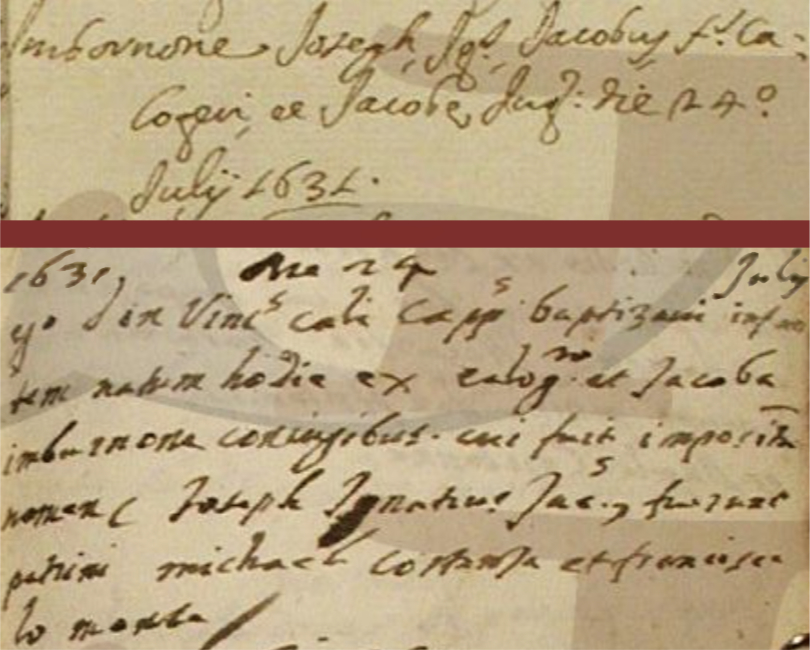 Imbornone Joseph Ign.s Jacobus f.s Ca=
logeri et Jacobe Jug: die 24º
Julij 1631.
1631, Die 24 July
ego D in Vinc.s cali Capp.s baptizavi infan
tem natum hodie ex calog.ro et Jacoba
imburnone coniugibus. cui fuit imposítu
nomen ( Joseph Ignatius Jac.s, fuerunt
patrini michael costanza et francisca
lo monte